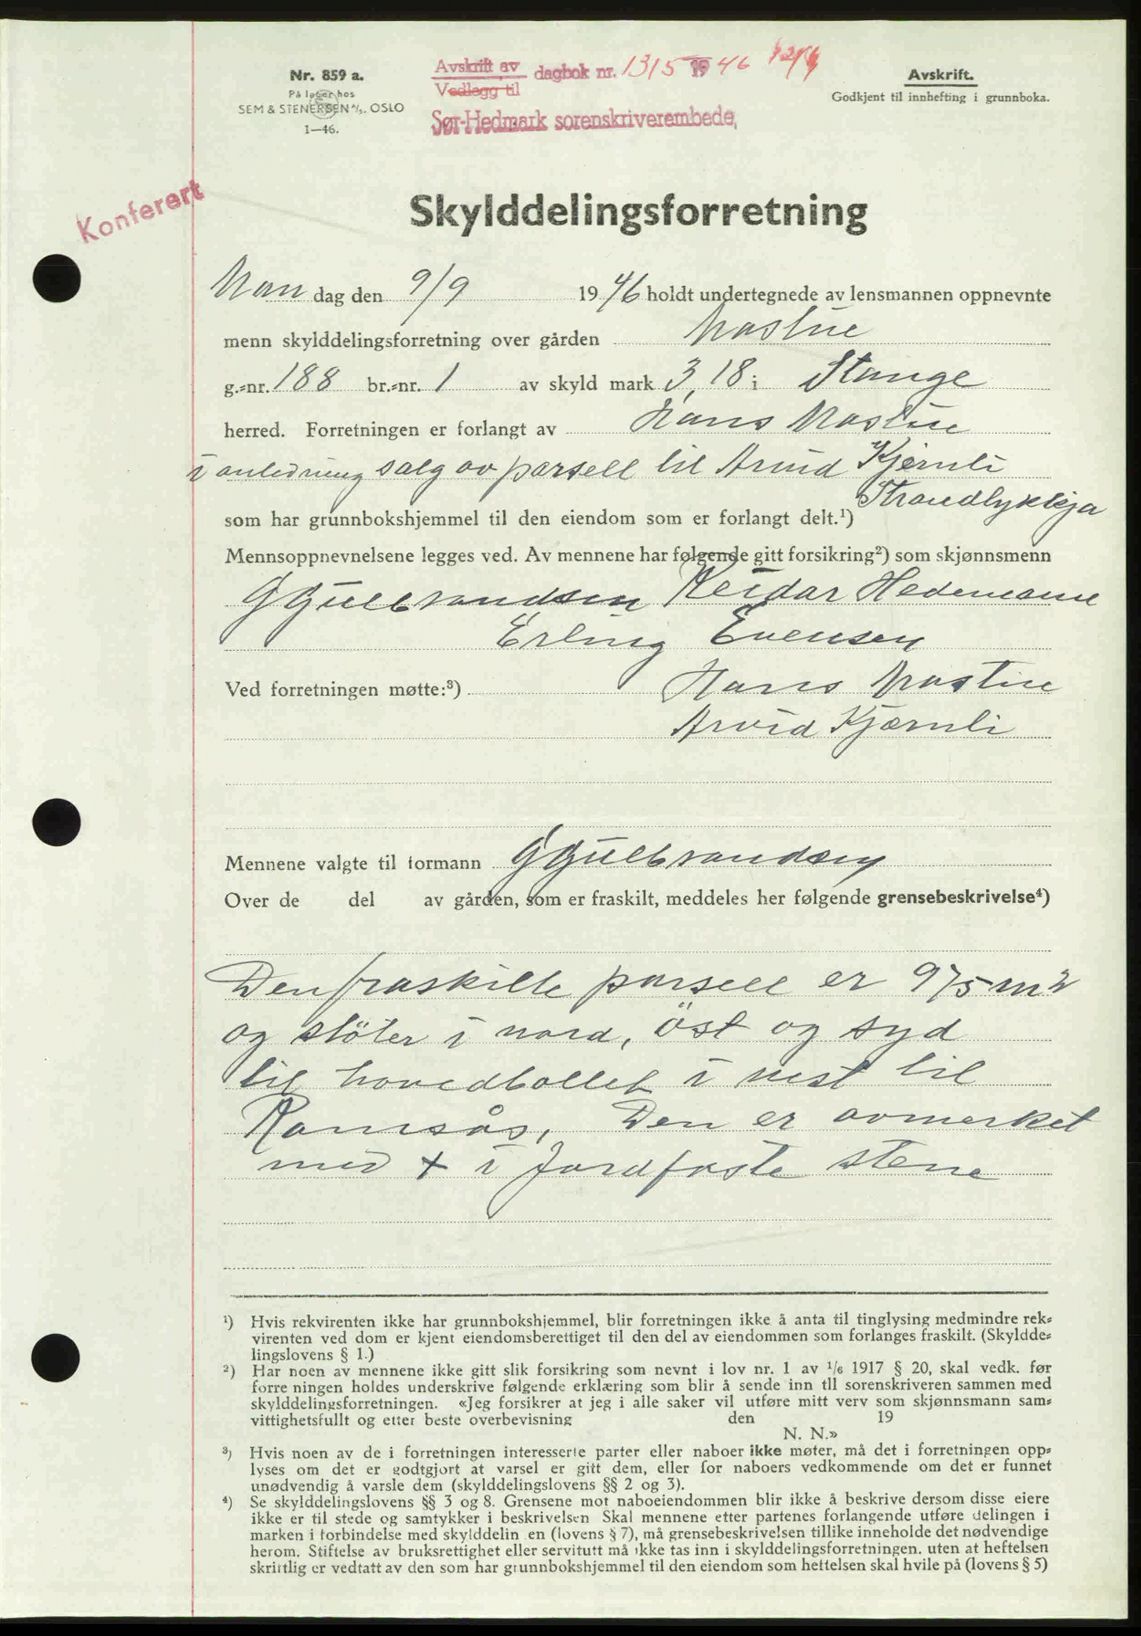 Nr. 859 a.
På lager hos
SEM & STENERSEN A/S. OSLO
1—46.
Avskrift av dagbok nr. 1315 1946
Vedlegg til
Sør-Hedmark sorenskriverembede,
Avskrift.
Godkjent til innhefting i grunnboka.
Konferert
Skylddelingsforretning
Man dag den 9/9 1946 holdt undertegnede av lensmannen oppnevnte
menn skylddelingsforretning over gården Mostue
g.-nr. 188 br.-nr. 1 av skyld mark 3,18 i Stange
herred. Forretningen er forlangt av Hans Mostue
i anledning salg av parsell til Arvid Kjernli
Strandlykkja
som har grunnbokshjemmel til den eiendom som er forlangt delt.¹)
Mennsoppnevnelsene legges ved. Av mennene har følgende gitt forsikring²) som skjønnsmenn
G Gulbrandsen Reidar Hedemann
Erling Evensen
Ved forretningen møtte:³) Hans Mostue
Arvid Kjærnli
Mennene valgte til formann G Gulbrandsen
Over de del av gården, som er fraskilt, meddeles her følgende grensebeskrivelse⁴)
Den fraskilte parsell er 975 m2
og stöter i nord, öst og syd
til hovedböllet i vest til
Ramsås, Den er avmerket
med + i Jordfaste stene
¹) Hvis rekvirenten ikke har grunnbokshjemmel, blir forretningen ikke å anta til tinglysing medmindre rek-
virenten ved dom er kjent eiendomsberettiget til den del av eiendommen som forlanges fraskilt. (Skyldde-
lingslovens § 1.)
²) Har noen av mennene ikke gitt slik forsikring som nevnt i lov nr. 1 av 1/6 1917 § 20, skal vedk. før
forre ningen holdes underskrive følgende erklæring som blir å sende inn tll sorenskriveren sammen med
skylddelingsforretningen. «Jeg forsikrer at jeg i alle saker vil utføre mitt verv som skjønnsmann sam-
vittighetsfullt og etter beste overbevisning den 19
N. N.»
³) Hvis noen av de i forretningen interesserte parter eller naboer ikke møter, må det i forretningen opp-
lyses om det er godtgjort at varsel er gitt dem, eller for naboers vedkommende om det er funnet
unødvendig å varsle dem (skylddelingslovens §§ 2 og 3).
⁴) Se skylddelingslovens §§ 3 og 8. Grensene mot naboeiendommen blir ikke å beskrive dersom disse eiere
ikke er til stede og samtykker i beskrivelsen Skal mennene etter partenes forlangende utføre delingen i
marken i forbindelse med skylddelin en (lovens § 7), må grensebeskrivelsen tillike inneholde det nødvendige
herom. Stiftelse av bruksrettighet eller servitutt må ikke tas inn i skylddelingsforretningen. uten at heftelsen
skriftlig er vedtatt av den som har grunnbokshjemmel til den eiendom som hettelsen skal hvile på (lovens § 5)